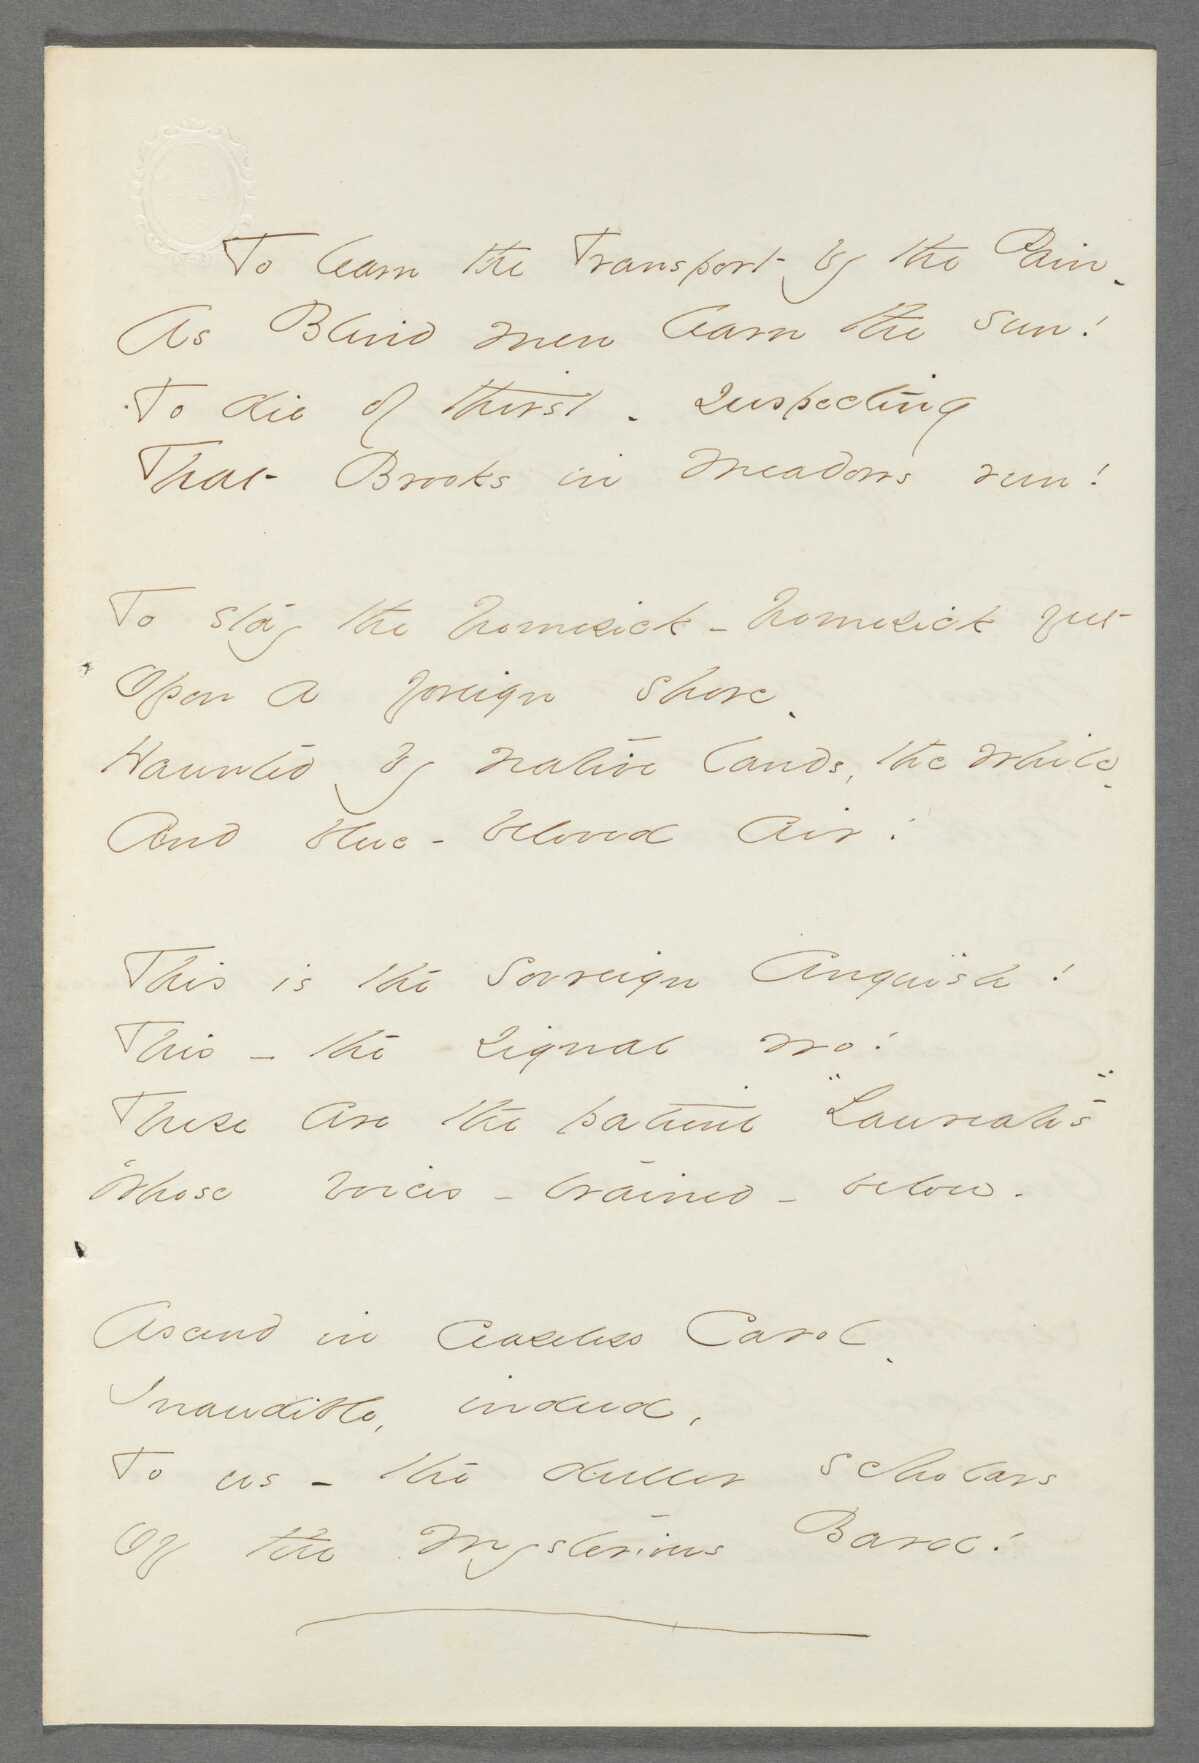 To learn the Transport by the Pain -
As Blind men learn the sun!
To die of thirst - suspecting
That Brooks in Meadows run!

To stay the homesick - homesick feet
Opon a foreign shore -
Haunted by native lands, the while -
And blue - beloved Air!

This is the Sovreign Anguish!
This - the signal wo!
These are the patient "Laureates"
Whose voices - trained - below -

Ascend in Ceaseless Carol -
Inaudible, indeed,
To us - the duller scholars
Of the Mysterious Bard!